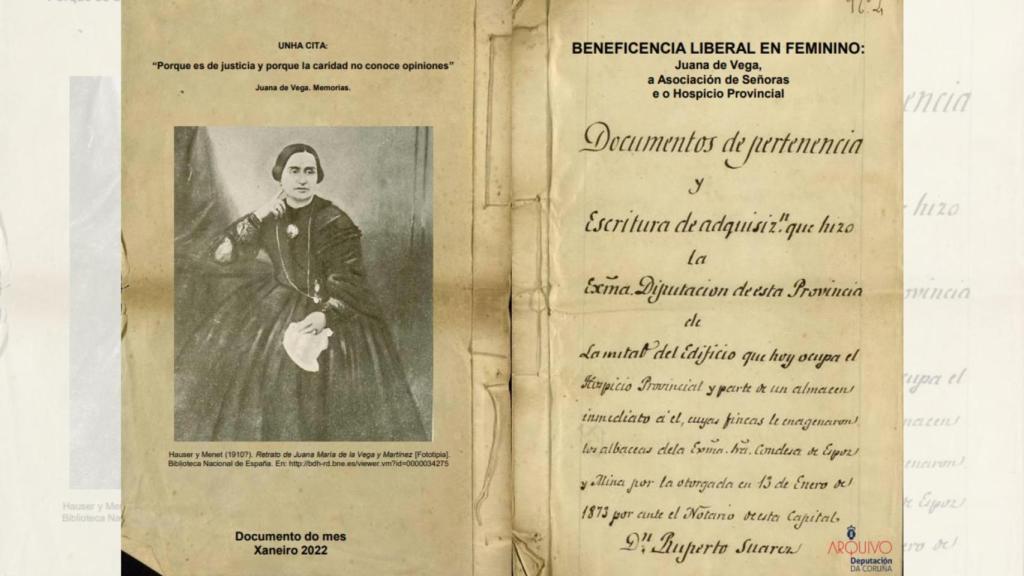 UNHA CITA:
“Porque es de justicia y porque la caridad no conoce opiniones”
Juana de Vega. Memorias.
Hauser y Menet (1910?). Retrato de Juana María de la Vega y Martínez [Fototipia].
Biblioteca Nacional de España. En: http://bdh-rd.bne.es/viewer.vm?id=0000034275
Documento do mes
Xaneiro 2022
BENEFICENCIA LIBERAL EN FEMININO:
Juana de Vega,
a Asociación de Señoras
e o Hospicio Provincial
Documentos de pertenencia
y
Escritura de adquisiz.n que hizo
la
Exma. Diputacion de esta Provincia
de
La mitad del Edificio que hoy ocupa el
Hospicio Provincial y parte de un almacen
inmediato á el, cuyas fincas le enagenaron
los albaceas de la Exma. Sra. Condesa de Espoz
y Mina por la otorgada en 13 de Enero de
1873 por ante el Notario de esta Capital
Dn. Ruperto Suarez
ARQUIVO
Deputación
DA CORUÑA